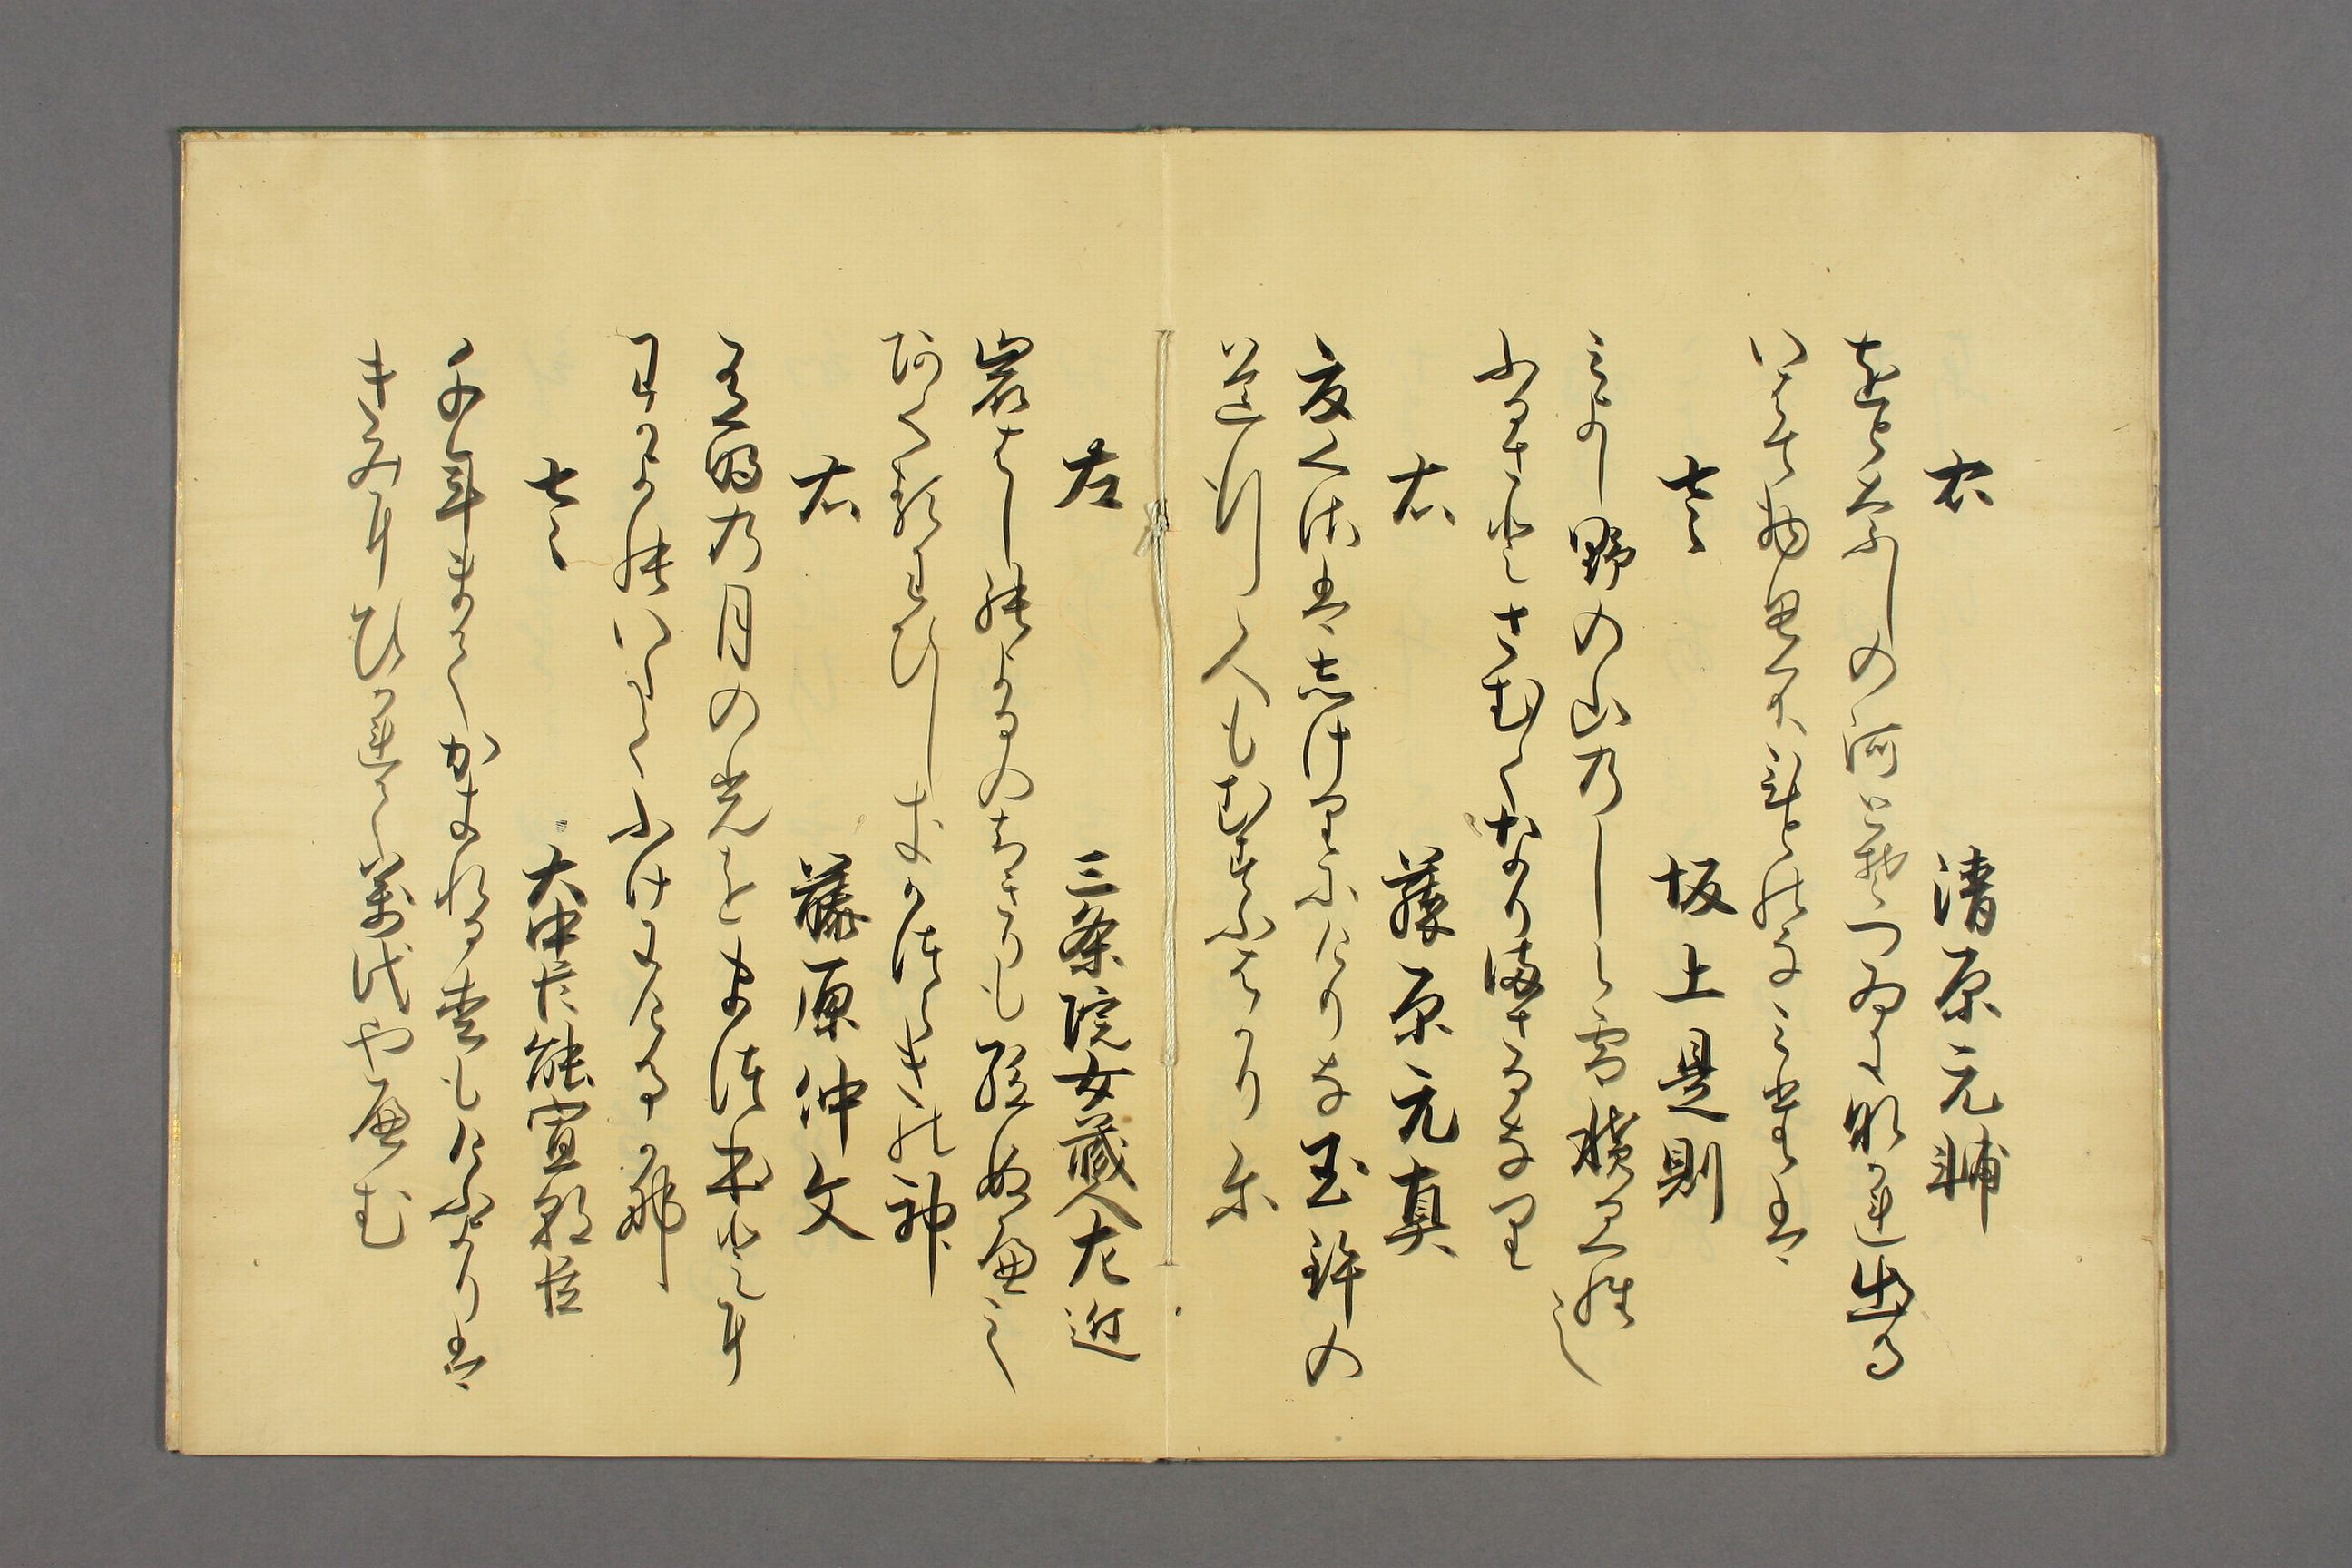 右 清原元輔
をとなしの河とそつゐになかれ出る
いはて物思ふ人のなみたは
左 坂上是則
みよし野の山のしら雪積るらし
ふるさとさむくなりまさるなり
右 藤原元真
夏くさは志けりにけりな玉鉾の
道行人もむすふはかりに
左 三条院女蔵人左近
岩はしのよるのちきりも絶ぬへし
あくるわひしきかつらきの神
右 藤原仲文
有明の月の光をまつほとに
わかよのいたくふけにけるかな
左 大中臣能宣朝臣
千年まてかきれる松もけふよりは
きみにひかれて萬代やへむ